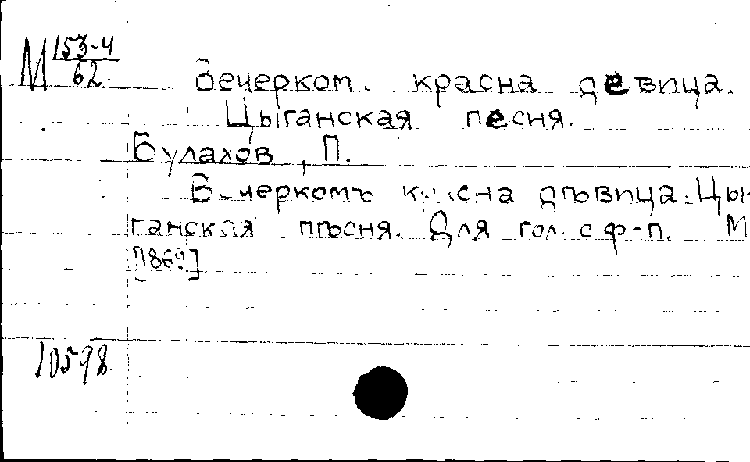 М 153-4/62
Вечерком красна девица.
Цыганская песня.
Булахов, П.
Вечеркомъ красна дѣвица. Цы-
ганская пѣсня. Для гол. с ф-п. М
10598